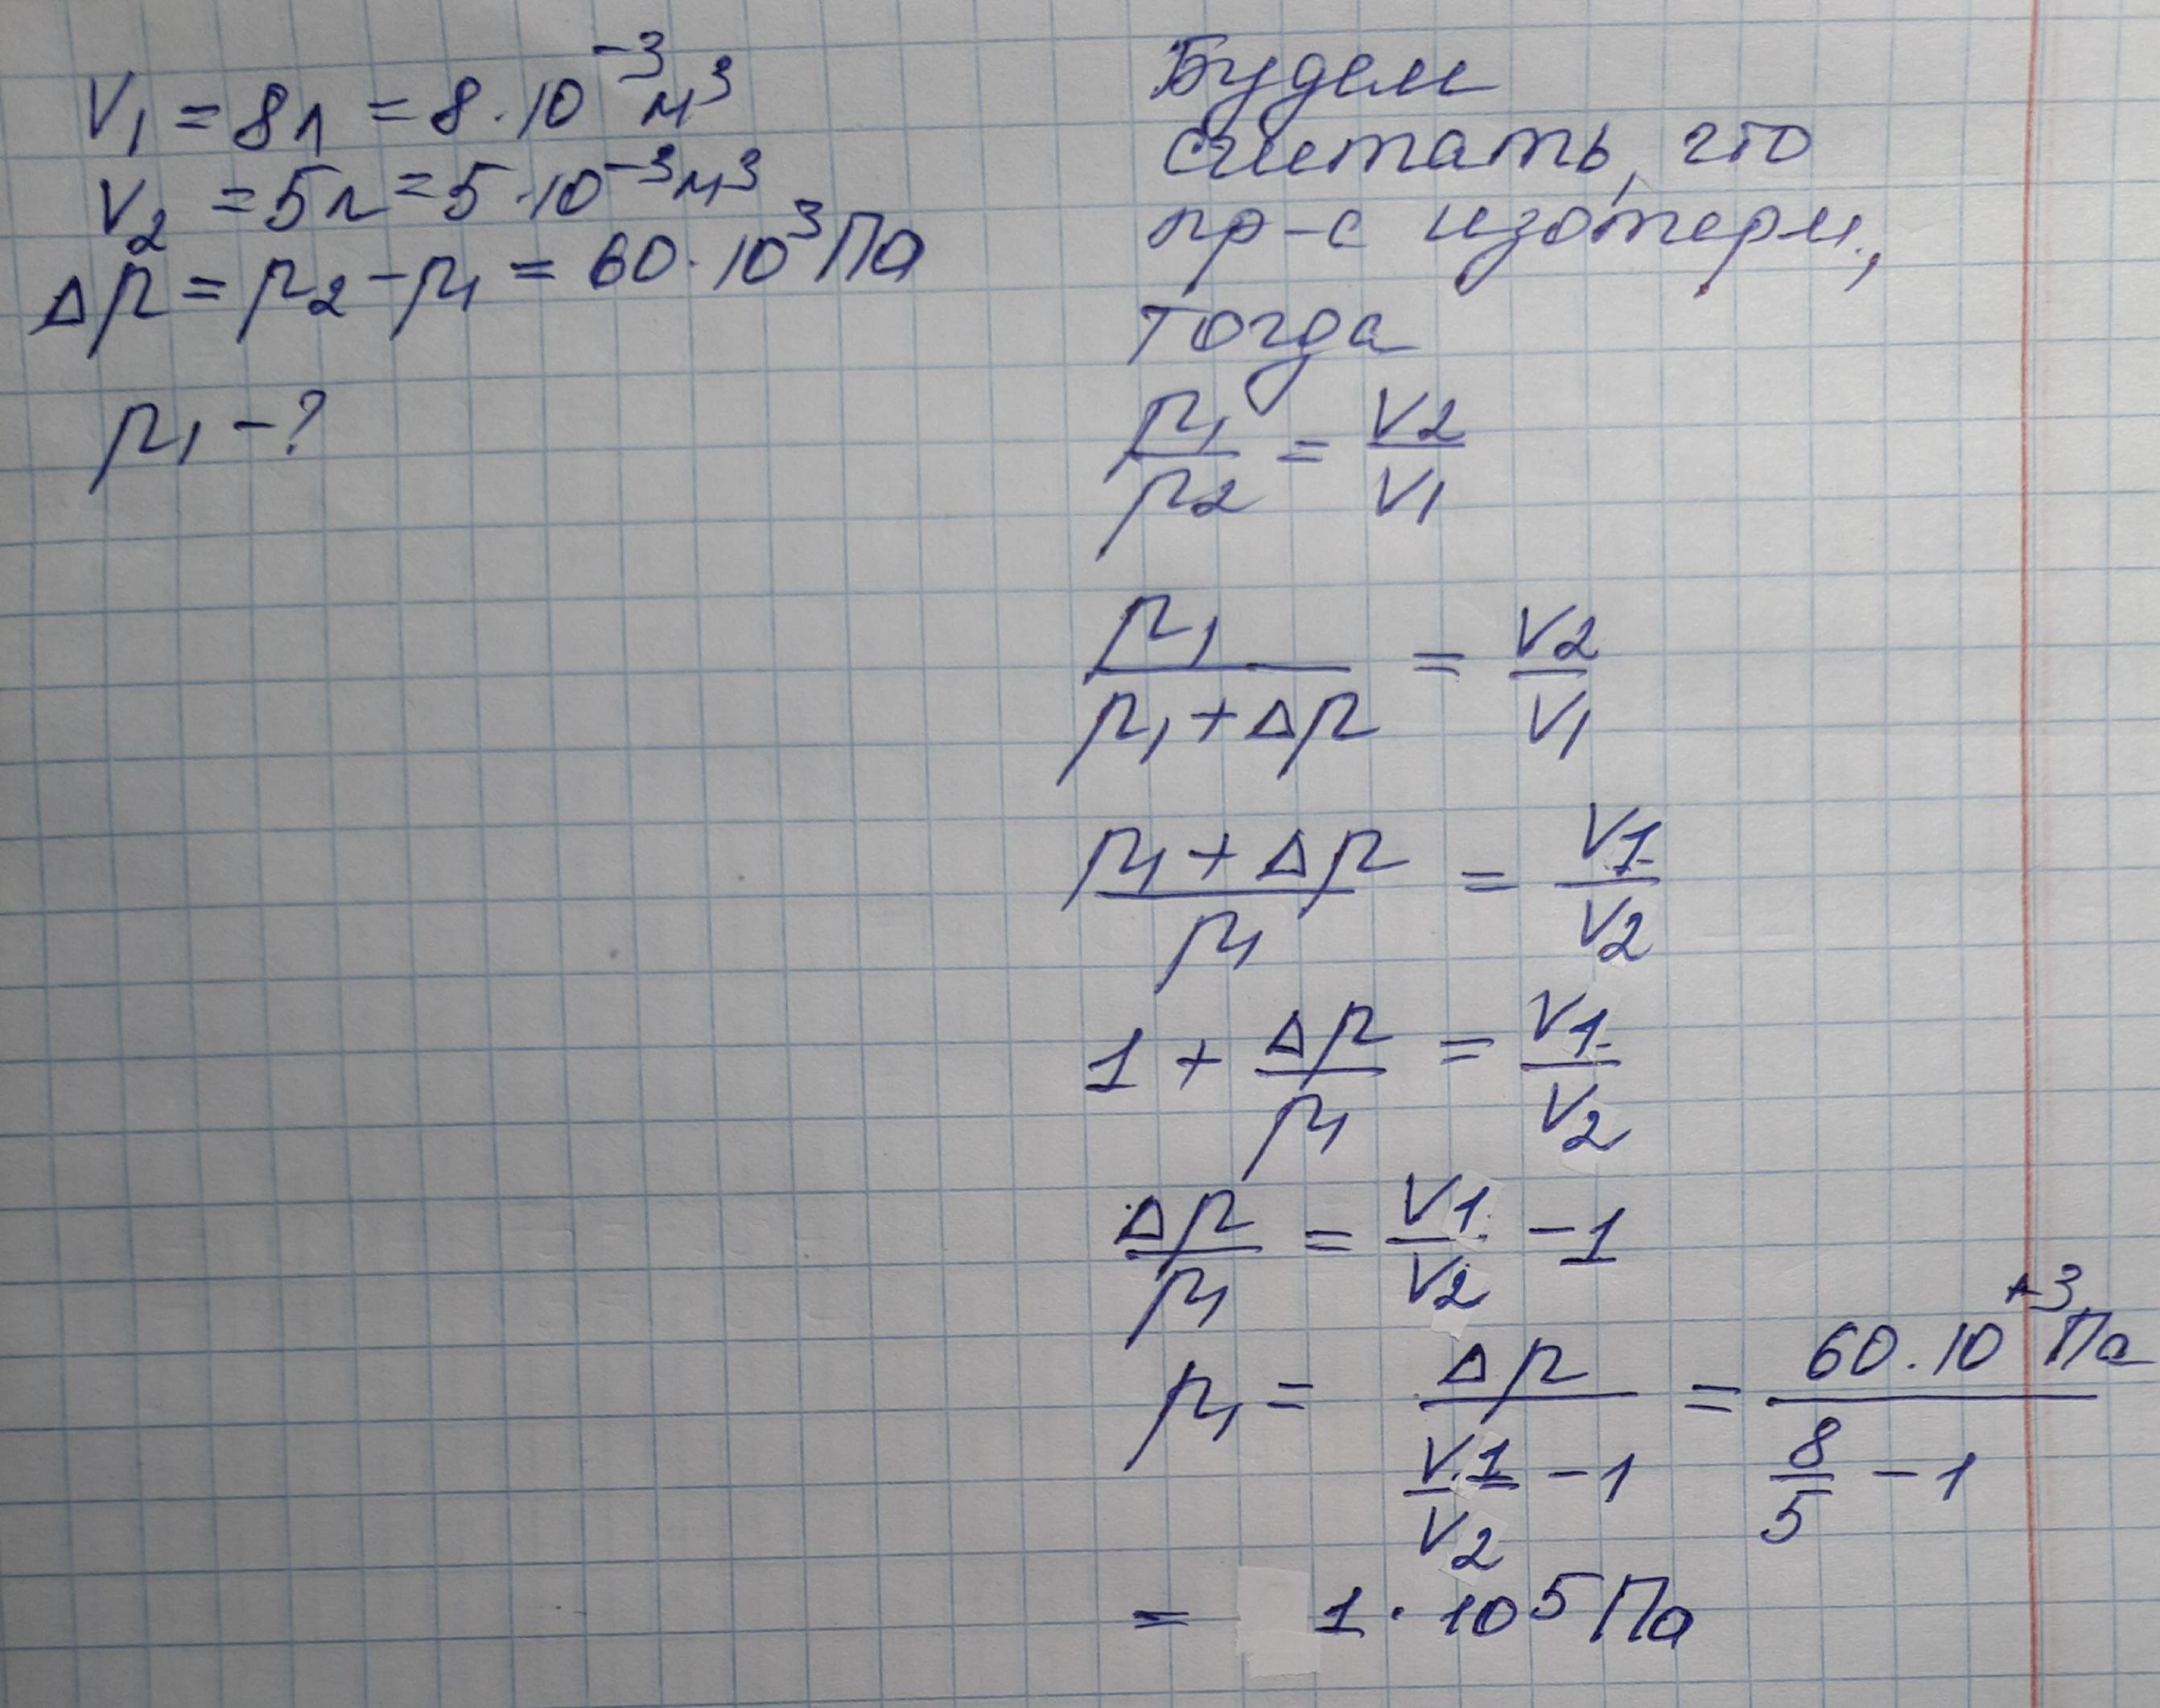 V₁ = 8л = 8·10⁻³ м³
V₂ = 5л = 5·10⁻³ м³
Δp = p₂ - p₁ = 60·10³ Па
p₁ - ?
Будем
считать, что
пр-с изотерм.,
тогда
p₁/p₂ = V₂/V₁
p₁/(p₁ + Δp) = V₂/V₁
(p₁ + Δp)/p₁ = V₁/V₂
1 + Δp/p₁ = V₁/V₂
Δp/p₁ = V₁/V₂ - 1
p₁ = Δp/(V₁/V₂ - 1) = 60·10⁺³ Па/(8/5 - 1)
= 1·10⁵ Па